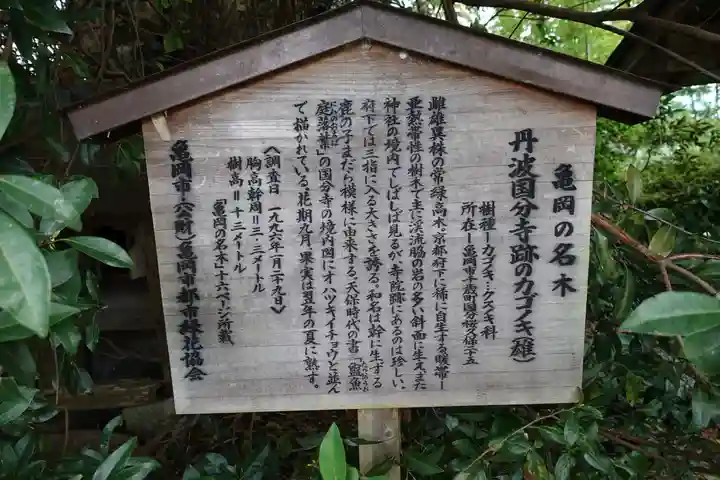 亀岡の名木
丹波国分寺跡のカゴノキ(雄)
樹種―カゴノキ…クスノキ科
所在―亀岡市千歳町国分桜久保二十五
雌雄異株の常緑高木。京都府下に稀に自生する暖帯―
亜熱帯性の樹木で主に渓流脇の岩の多い斜面に生え、また
神社の境内でしばしば見るが、寺院跡にあるのは珍しい。
府下では三指に入る大きさを誇る。和名は幹に生ずる
鹿の子まだら模様に由来する。天保時代の書「盥魚
鹿落葉」の国分寺の境内図にオハツキイチョウと並ん
で描かれている。花期九月、果実は翌年の夏に熟す。
〈調査日 一九九六年一月二十九日〉
胸高幹周=三・三メートル
樹高=十三メートル
(亀岡の名木 十六ページ所載)
亀岡市・(公財)亀岡市都市緑花協会